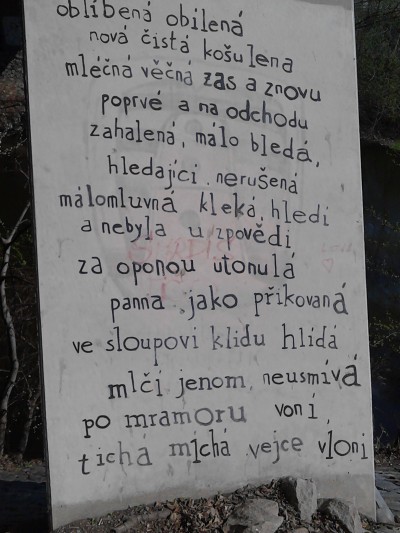 oblíbená obílená
nová čistá košulena
mléčná věčná zas a znovu
poprvé a na odchodu
zahalená, málo bledá,
hledající, nerušená
málomluvná kleká, hledí
a nebyla u zpovědi
za oponou utonulá
panna jako přikovaná
ve sloupoví klidu hlídá
mlčí jenom, neusmívá
po mramoru voní,
tichá mlchá vejce vloni